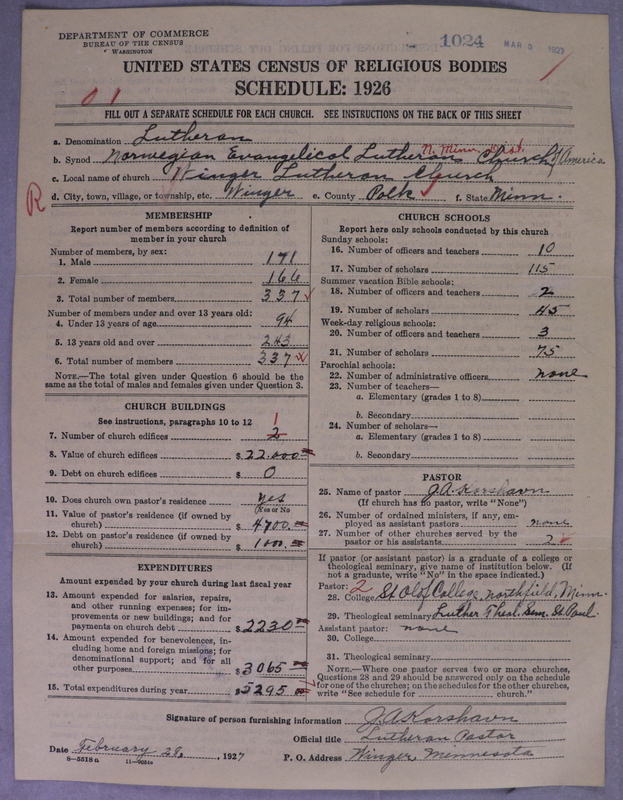 DEPARTMENT OF COMMERCE
BUREAU OF THE CENSUS
WASHINGTON
1024 MAR 5 1927
UNITED STATES CENSUS OF RELIGIOUS BODIES
SCHEDULE: 1926
01
FILL OUT A SEPARATE SCHEDULE FOR EACH CHURCH. SEE INSTRUCTIONS ON THE BACK OF THIS SHEET
a. Denomination Lutheran
N. Minn. Dist.
b. Synod Norwegian Evangelical Lutheran Church of America
c. Local name of church Winger Lutheran Church
R
d. City, town, village, or township, etc. Winger e. County Polk f. State Minn.
MEMBERSHIP
Report number of members according to definition of
member in your church
Number of members, by sex:
1. Male 171
2. Female 166
3. Total number of members 337
Number of members under and over 13 years old:
4. Under 13 years of age 94
5. 13 years old and over 243
6. Total number of members 337
NOTE.—The total given under Question 6 should be
same as the total of males and females given under Question 3.
CHURCH BUILDINGS
See instructions, paragraphs 10 to 12
1
7. Number of church edifices 2
8. Value of church edifices $ 22.000
9. Debt on church edifices $ 0
10. Does church own pastor's residence yes
(Yes or No)
11. Value of pastor's residence (if owned by
church) $ 4700.
12. Debt on pastor's residence (if owned by
church) $ 1000.
EXPENDITURES
Amount expended by your church during last fiscal year
13. Amount expended for salaries, repairs,
and other running expenses; for im-
provements or new buildings; and for
payments on church debt $ 2230
14. Amount expended for benevolences, in-
cluding home and foreign missions; for
denominational support; and for all
other purposes $ 3065
15. Total expenditures during year $ 5295
CHURCH SCHOOLS
Report here only schools conducted by this church
Sunday schools:
16. Number of officers and teachers 10
17. Number of scholars 115
Summer vacation Bible schools:
18. Number of officers and teachers 2
19. Number of scholars 45
Week-day religious schools:
20. Number of officers and teachers 3
21. Number of scholars 75
Parochial schools:
22. Number of administrative officers none
23. Number of teachers—
a. Elementary (grades 1 to 8)
b. Secondary
24. Number of scholars—
a. Elementary (grades 1 to 8)
b. Secondary
PASTOR
25. Name of pastor J.A. Korshavn
(If church has no pastor, write "None")
26. Number of ordained ministers, if any, em-
ployed as assistant pastors none
27. Number of other churches served by the
pastor or his assistants 2
If pastor (or assistant pastor) is a graduate of a college or
theological seminary, give name of institution below. (If
not a graduate, write "No" in the space indicated.)
Pastor: 2
28. College St Olaf College, Northfield, Minn.
29. Theological seminary Luther Theol. Sem. St Paul.
Assistant pastor: none
30. College
31. Theological seminary
NOTE.—Where one pastor serves two or more churches,
Questions 28 and 29 should be answered only on the schedule
for one of the churches; on the schedules for the other churches,
write "See schedule for church."
Signature of person furnishing information J.A. Korshavn
Official title Lutheran Pastor
Date February 28, 1927 P. O. Address Winger, Minnesota
8—5518 a